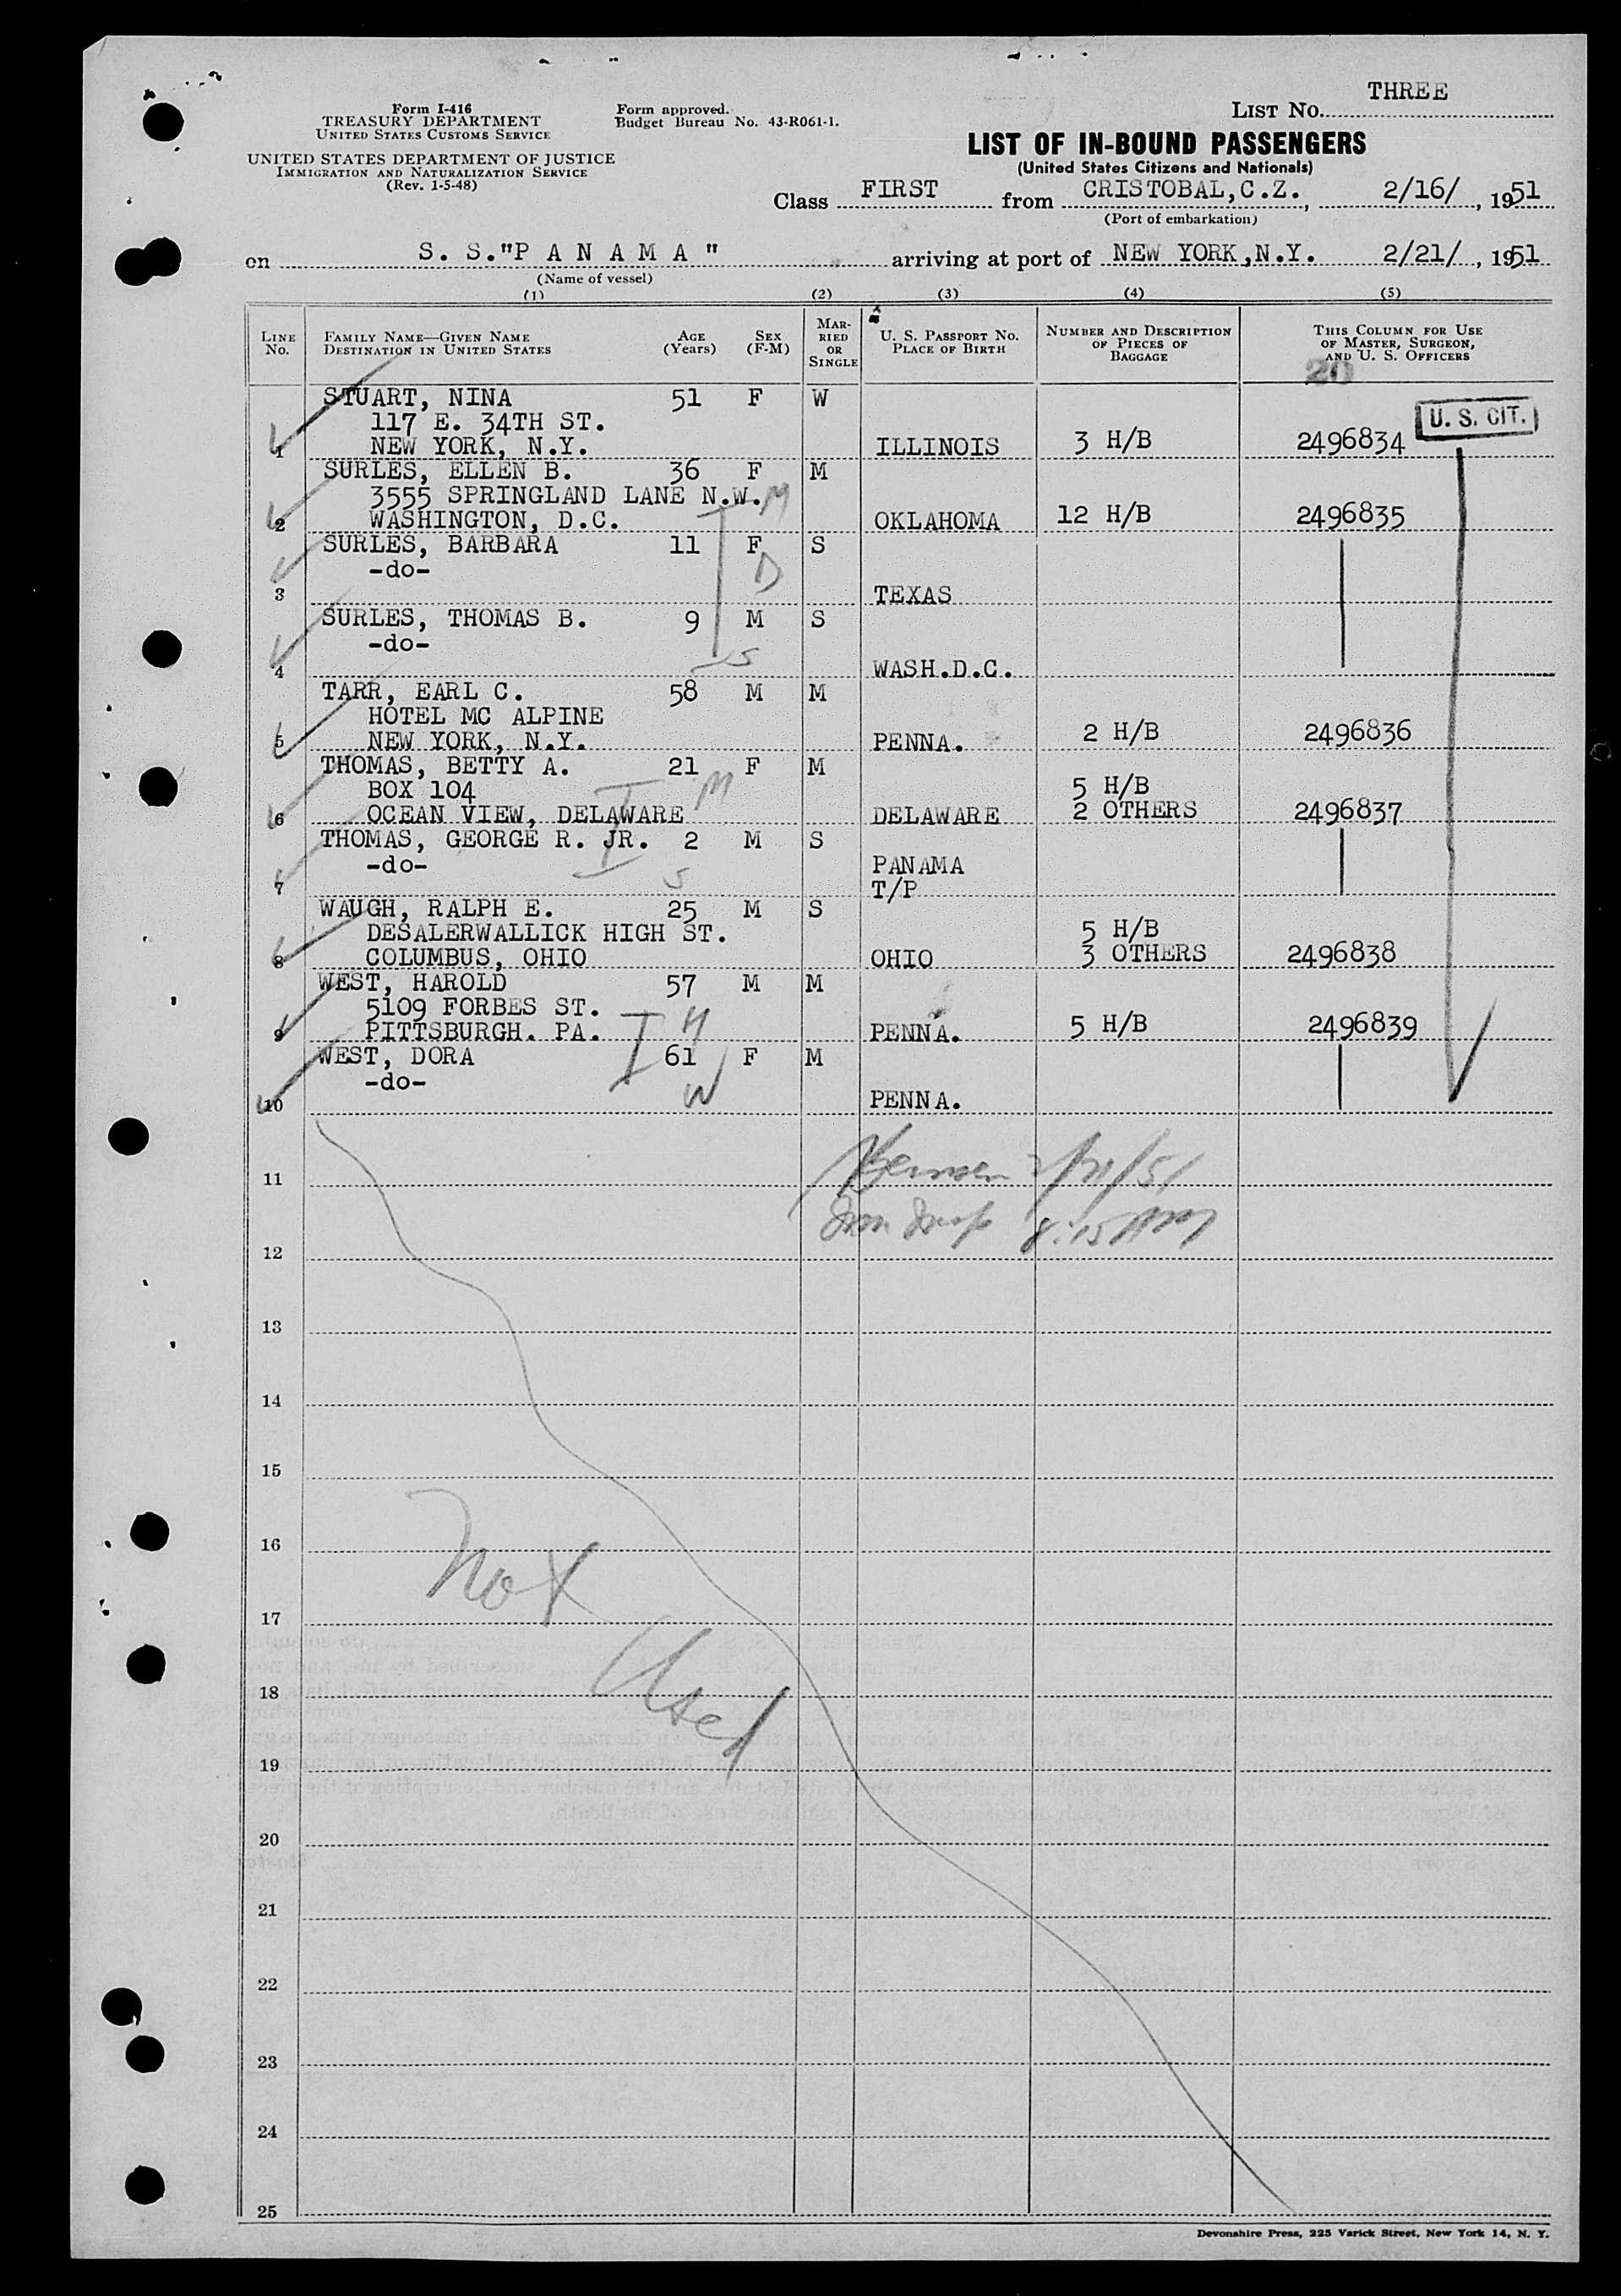 THREE
Form I-416
TREASURY DEPARTMENT
UNITED STATES CUSTOMS SERVICE
UNITED STATES DEPARTMENT OF JUSTICE
IMMIGRATION AND NATURALIZATION SERVICE
(Rev. 1-5-48)
Form approved.
Budget Bureau No. 43-R061-1.
LIST NO.
LIST OF IN-BOUND PASSENGERS
(United States Citizens and Nationals)
Class FIRST from CRISTOBAL,C.Z., 2/16/, 1951
(Port of embarkation)
on S. S."P A N A M A" arriving at port of NEW YORK,N.Y. 2/21/, 1951
(Name of vessel)
(1) (2) (3) (4) (5)
LINE NO. FAMILY NAME—GIVEN NAME DESTINATION IN UNITED STATES AGE (Years) SEX (F-M) MARRIED OR SINGLE U. S. PASSPORT NO. PLACE OF BIRTH NUMBER AND DESCRIPTION OF PIECES OF BAGGAGE THIS COLUMN FOR USE OF MASTER, SURGEON, AND U. S. OFFICERS
20
STUART, NINA 51 F W
117 E. 34TH ST. U. S. CIT.
1 NEW YORK, N.Y. ILLINOIS 3 H/B 2496834
SURLES, ELLEN B. 36 F M
3555 SPRINGLAND LANE N.W. M
2 WASHINGTON, D.C. OKLAHOMA 12 H/B 2496835
SURLES, BARBARA 11 F S
-do- D
3 TEXAS
SURLES, THOMAS B. 9 M S
-do- S
4 WASH.D.C.
TARR, EARL C. 58 M M
HOTEL MC ALPINE
5 NEW YORK, N.Y. PENNA. 2 H/B 2496836
THOMAS, BETTY A. 21 F M
BOX 104 M 5 H/B
6 OCEAN VIEW, DELAWARE DELAWARE 2 OTHERS 2496837
THOMAS, GEORGE R. JR. 2 M S
-do- S PANAMA
7 T/P
WAUGH, RALPH E. 25 M S
DESALERWALLICK HIGH ST. 5 H/B
8 COLUMBUS, OHIO OHIO 3 OTHERS 2496838
WEST, HAROLD 57 M M
5109 FORBES ST.
9 PITTSBURGH. PA. H PENNA. 5 H/B 2496839
WEST, DORA 61 F M
-do- W
10 PENNA.
2/21/51
11
8:15
12
13
14
15
16
Not
17
Used
18
19
20
21
22
23
24
25
Devonshire Press, 225 Varick Street, New York 14, N. Y.